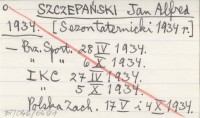 SZCZEPAŃSKI Jan Alfred
1934. [Sezon taternicki 1934 r.]
— Prz. Sport. 28 IV 1934.
" " 6 X 1934.
IKC 27 IV 1934.
" 5 X 1934.
Polska Zach. 17 V i 4 X 1934.